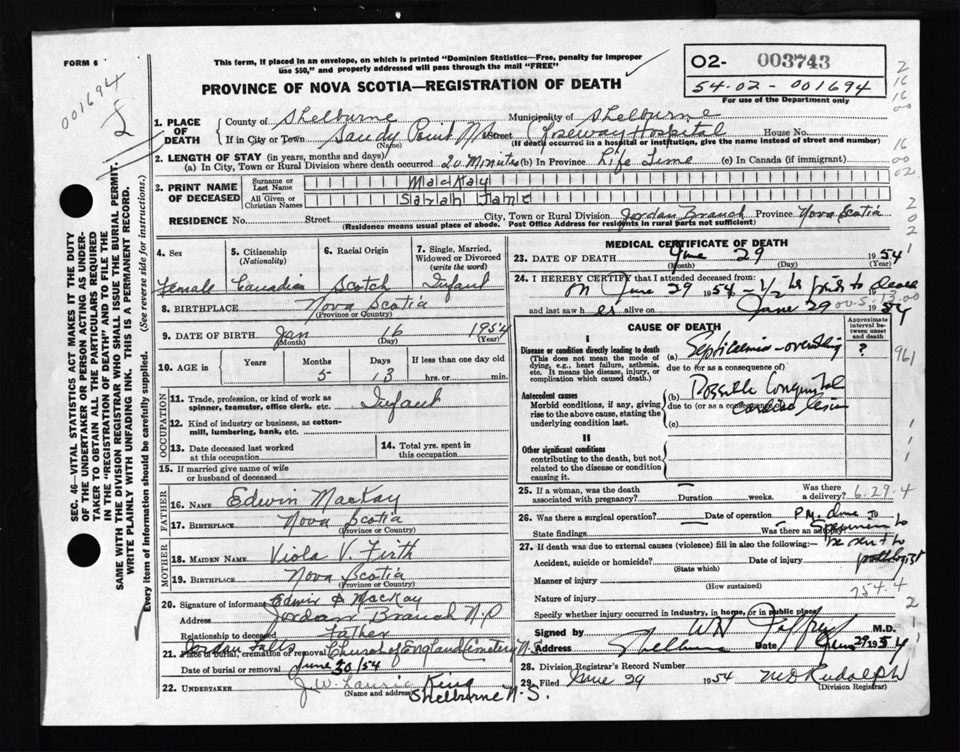 FORM 6
This form, if placed in an envelope, on which is printed "Dominion Statistics—Free, penalty for improper
use $50," and properly addressed will pass through the mail "FREE"
PROVINCE OF NOVA SCOTIA—REGISTRATION OF DEATH
O2- 003743
54-02-001694
For use of the Department only
001694
1. PLACE OF DEATH
County of Shelburne Municipality of Shelburne
If in City or Town Sandy Point N.S. Street Roseway Hospital House No.
(Name) (If death occurred in a hospital or institution, give the name instead of street and number)
2. LENGTH OF STAY (in years, months and days)
(a) In City, Town or Rural Division where death occurred 20 Minutes (b) In Province Life Time (c) In Canada (if immigrant)
3. PRINT NAME OF DECEASED
Surname or Last Name MacKay
All Given or Christian Names Sarah Jane
RESIDENCE No. Street City, Town or Rural Division Jordan Branch Province Nova Scotia
(Residence means usual place of abode. Post Office Address for residents in rural parts not sufficient)
SEC. 46—VITAL STATISTICS ACT MAKES IT THE DUTY
OF THE UNDERTAKER OR PERSON ACTING AS UNDER-
TAKER TO OBTAIN ALL THE PARTICULARS REQUIRED
IN THE "REGISTRATION OF DEATH" AND TO FILE THE
SAME WITH THE DIVISION REGISTRAR WHO SHALL ISSUE THE BURIAL PERMIT.
WRITE PLAINLY WITH UNFADING INK. THIS IS A PERMANENT RECORD.
Every item of Information should be carefully supplied. (See reverse side for instructions.)
4. Sex
5. Citizenship (Nationality)
6. Racial Origin
7. Single, Married, Widowed or Divorced (write the word)
Female Canadian Scotch Infant
8. BIRTHPLACE Nova Scotia
(Province or Country)
9. DATE OF BIRTH Jan 16 1954
(Month) (Day) (Year)
10. AGE in Years Months Days If less than one day old
5 13 hrs. or min.
OCCUPATION
11. Trade, profession, or kind of work as
spinner, teamster, office clerk, etc. Infant
12. Kind of industry or business, as cotton-
mill, lumbering, bank, etc.
13. Date deceased last worked
at this occupation
14. Total yrs. spent in
this occupation
15. If married give name of wife
or husband of deceased
FATHER
16. Name Edwin MacKay
17. Birthplace Nova Scotia
(Province or Country)
MOTHER
18. Maiden Name Viola V. Firth
19. Birthplace Nova Scotia
(Province or Country)
20. Signature of informant Edwin A MacKay
Address Jordan Branch N.S
Relationship to deceased Father
Jordan Falls
21. Place of burial, cremation or removal Church of England Cemetery N.S.
Date of burial or removal June 30/54
22. Undertaker J. W. Laurie King
(Name and address) Shelburne N.S.
MEDICAL CERTIFICATE OF DEATH
23. DATE OF DEATH June 29 1954
(Month) (Day) (Year)
24. I HEREBY CERTIFY that I attended deceased from:
on June 29 1954 - 1/2 hr prior to death
and last saw her alive on June 29 1954
CAUSE OF DEATH
Approximate interval between onset and death
I
Disease or condition directly leading to death
(This does not mean the mode of
dying, e.g., heart failure, asthenia,
etc. It means the disease, injury, or
complication which caused death.)
(a) Septicemia ?
due to (or as a consequence of)
Antecedent causes
Morbid conditions, if any, giving
rise to the above cause, stating the
underlying condition last.
(b) Possible Congenital
due to (or as a consequence of)
cardiac lesion
(c)
II
Other significant conditions
contributing to the death, but not
related to the disease or condition
causing it.
25. If a woman, was the death
associated with pregnancy? Duration weeks. Was there
a delivery? 6.29.4
26. Was there a surgical operation? Date of operation P.M. done
State findings Was there an autopsy? Specimen to
be sent to
pathologist
27. If death was due to external causes (violence) fill in also the following:
Accident, suicide or homicide?
(State which)
Manner of injury
(How sustained)
Nature of injury 754.4
Specify whether injury occurred in industry, in home, or in public place
Signed by M.D.
Address Shelburne Date June 29 1954
28. Division Registrar's Record Number
29. Filed June 29 1954 M D Rudolph
(Division Registrar)